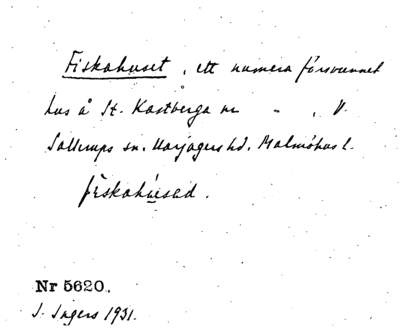 Fiskahuset, ett numera försvunnet
hus å St. Kastberga nr - , V.
Sallerups sn. Harjagers hd. Malmöhus l.
fiskahúsad.
Nr 5620.
I. Ingers 1931.